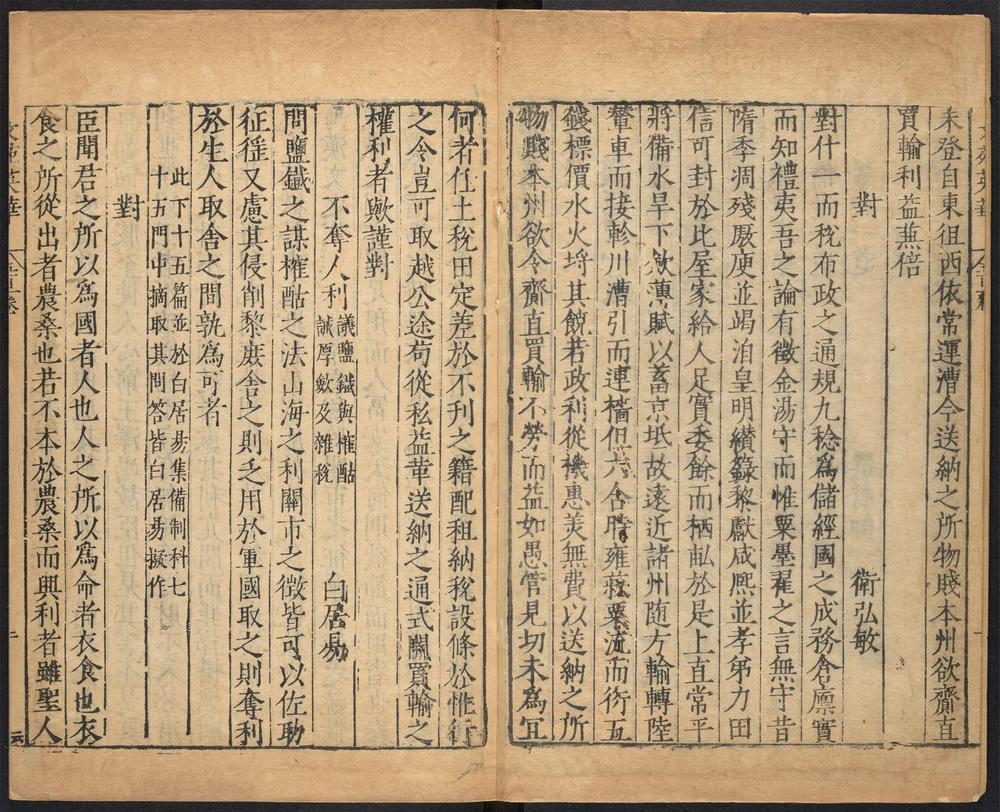 未登自東徂西依常運漕今送納之所物賤本州欲齎直
買輸利益兼倍
對 衛弘敏
對什一而稅布政之通規九稔爲儲經國之成務倉廪實
而知禮夷吾之論有徵金湯守而惟粟墨翟之言無守昔
隋季凋殘厫庾並竭洎皇明纉籙黎獻咸熈並孝弟力田
信可封於比屋家給人足實委餘而栖畆於是上直常平
將備水旱下歛薄賦以蓄京坻故遠近諸州随方輸轉陸
輦車而接軫川漕引而連檣但六合時雍菽粟流而衍五
錢標價水火埒其饒若政利從機惠美無費以送納之所
物賤本州欲令齎直買輸不勞而益如愚管見切未爲宜
何者任土稅田定差於不刋之籍配租納稅設條於惟行
之令豈可取越公途苟從私益葦送納之通式關買輸之
權利者歟謹對
不奪人利 議鹽鐵與榷酤 誡厚歛及雜稅 白居易
問鹽鐵之謀榷酤之法山海之利關市之徵皆可以佐助
征徭又慮其侵削黎庶舍之則乏用於軍國取之則奪利
於生人取舍之間孰爲可者
此下十五篇並於白居易集備制科七
十五門中摘取其問答皆白居易擬作
對
臣聞君之所以爲國者人也人之所以爲命者衣食也衣
食之所從出者農桑也若不本於農桑而興利者雖聖人
文苑英華